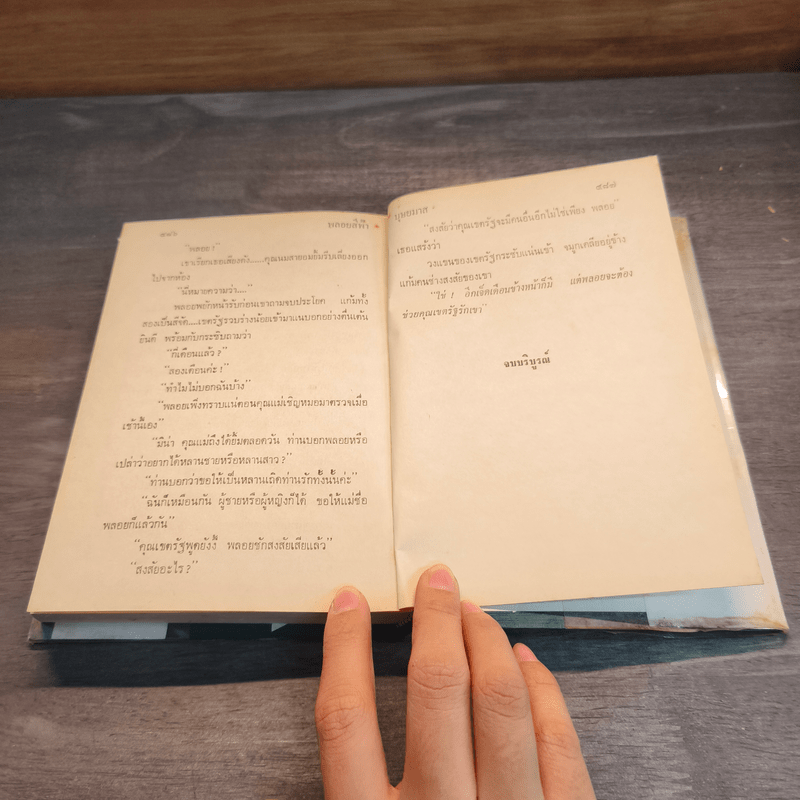 ๔๘๖
พลอยสีฟ้า
"พลอย!"
เขาเรียกเธอเสียงดัง.....คุณนมสายอมยิ้มรีบเลี่ยงออก
ไปจากห้อง
"นี่หมายความว่า...."
พลอยพยักหน้ารับก่อนเขาถามจบประโยค แก้มทั้ง
สองเป็นสีจัด....เขตรัฐรวบร่างน้อยเข้ามาแนบอกอย่างตื่นเต้น
ยินดี พร้อมกับกระซิบถามว่า
"กี่เดือนแล้ว?"
"สองเดือนค่ะ!"
"ทำไมไม่บอกฉันบ้าง"
"พลอยเพิ่งทราบแน่ตอนคุณแม่เชิญหมอมาตรวจเมื่อ
เช้านี้เอง"
"มิน่า คุณแม่ถึงได้ยิ้มตลอดวัน ท่านบอกพลอยหรือ
เปล่าว่าอยากได้หลานชายหรือหลานสาว?"
"ท่านบอกว่าขอให้เป็นหลานเถิดท่านรักทั้งนั้นค่ะ"
"ฉันก็เหมือนกัน ผู้ชายหรือผู้หญิงก็ได้ ขอให้แม่ชื่อ
พลอยก็แล้วกัน"
"คุณเขตรัฐพูดยังงี้ พลอยชักสงสัยเสียแล้ว"
"สงสัยอะไร?"
บุษยมาส
๔๘๗
"สงสัยว่าคุณเขตรัฐจะมีคนอื่นอีกไม่ใช่เพียง พลอย"
เธอแสร้งว่า
วงแขนของเขตรัฐกระชับแน่นเข้า จมูกเคลียอยู่ข้าง
แก้มคนช่างสงสัยของเขา
"ใช่! อีกเจ็ดเดือนข้างหน้าก็มี แต่พลอยจะต้อง
ช่วยคุณเขตรัฐรักเขา"
จบบริบูรณ์